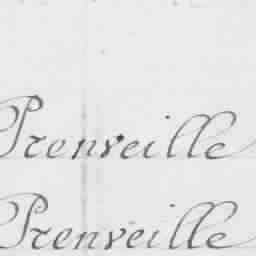 Prenveille
Prenveille